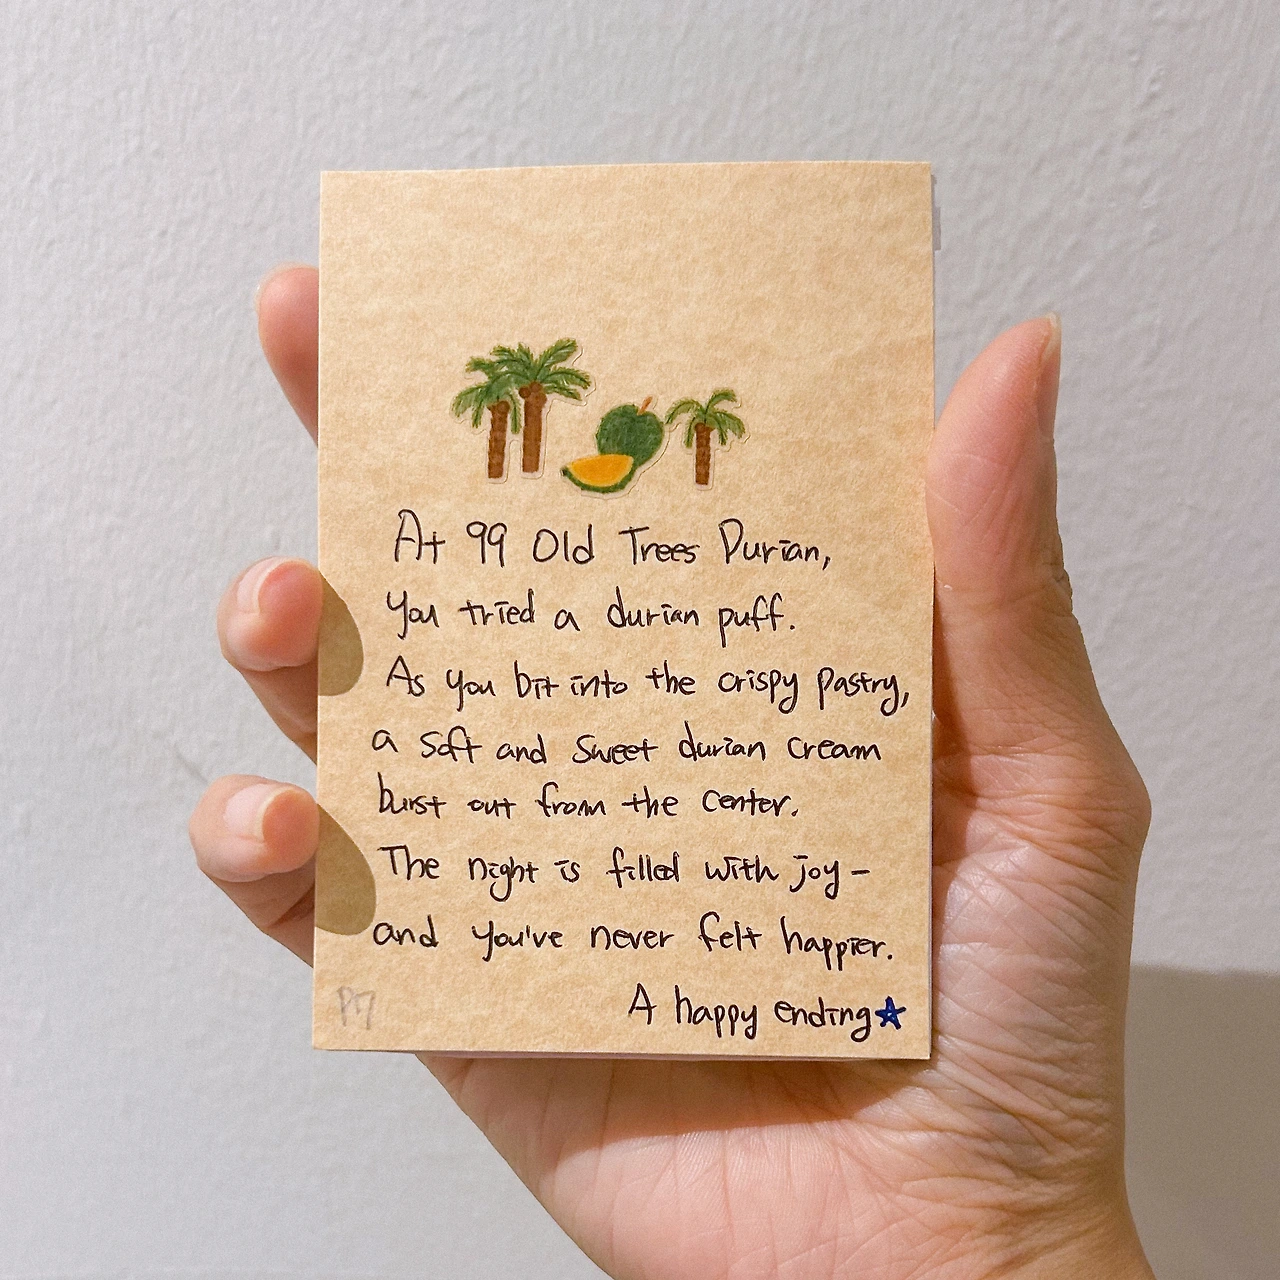 At 99 Old Trees Durian,
you tried a durian puff.
As you bit into the crispy pastry,
a soft and sweet durian cream
burst out from the center.
The night is filled with joy-
and you've never felt happier.
A happy ending★
P7